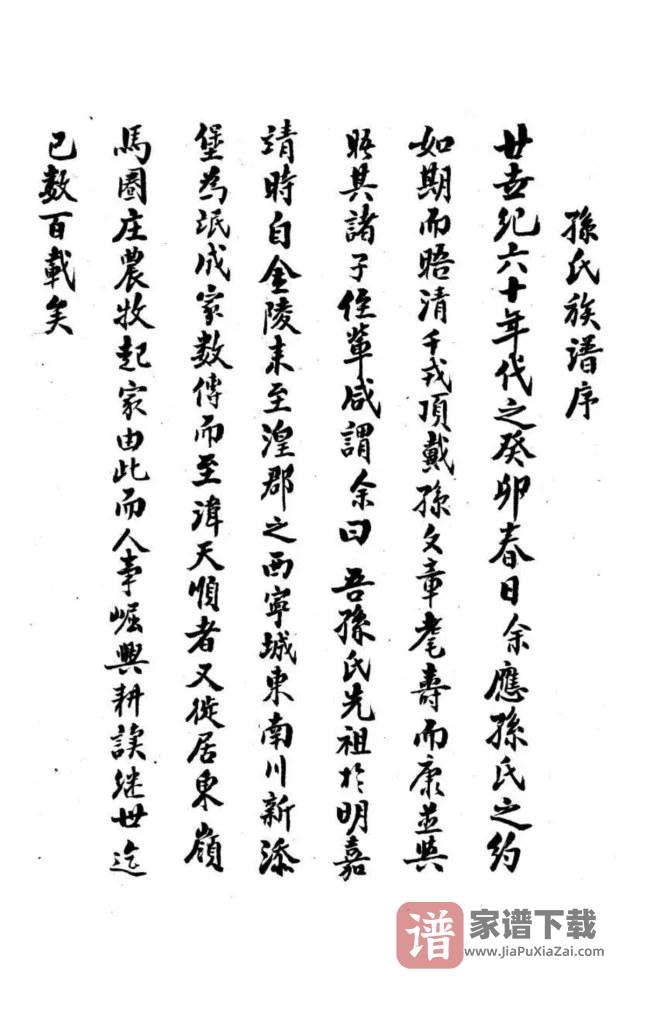 孫氏族譜序
廿世紀六十年代之癸卯春日余應孫氏之約
如期而晤清千戎頂戴孫文章耄壽而康並與
晤其諸子侄輩咸謂余曰吾孫氏先祖於明嘉
靖時自金陵來至湟郡之西寧城東南川新添
堡為氓成家数傳而至諱天順者又徙居東嶺
馬圈庄農牧起家由此而人事崛興耕讀継世迄
已数百載矣
谱 家谱下载
www.JiaPuXiaZai.com